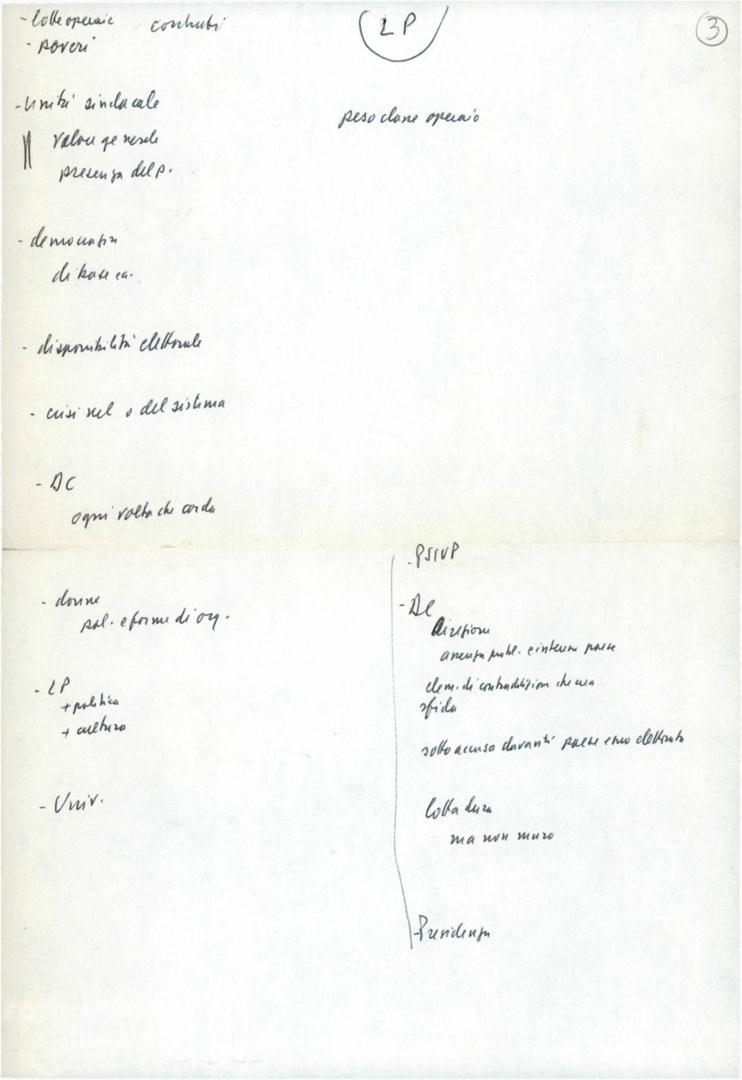 LP
3
- lotte operaie
- poveri
- Unità sindacale
valore generale
presenza del p.
peso classe operaio
- democrazia
di base ecc.
- disponibilità elettorale
- crisi nel o del sistema
- DC
ogni volta che
- donne
pol. e forme di org.
- LP
+ politica
+ cultura
- Univ.
- PSIUP
- DC
Direzione
elem. di contraddizione che
sfida
sotto accusa davanti paese e suo elettorato
lotta dura
ma non muro
- Presidenza